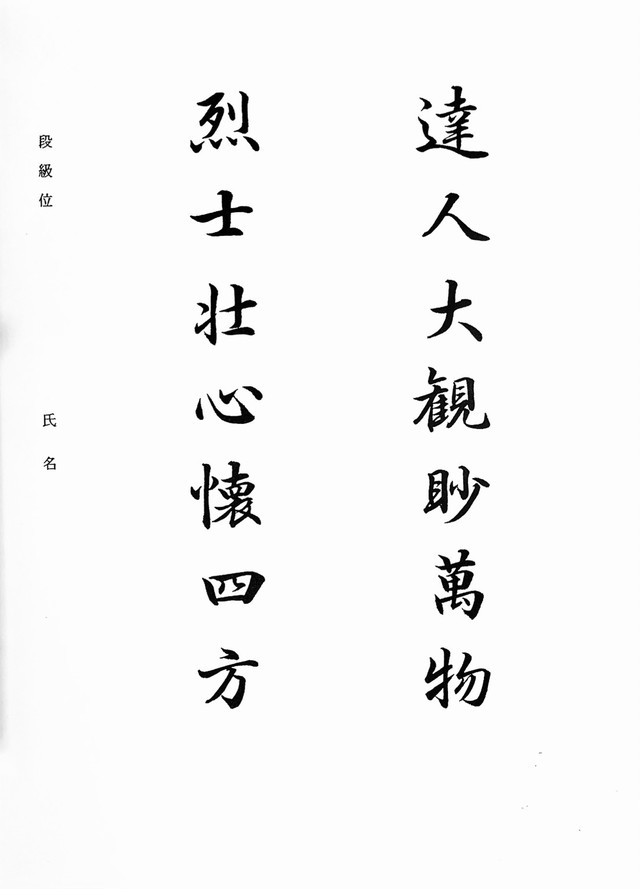 達人大観眇萬物
烈士壮心懐四方
段級位
氏名